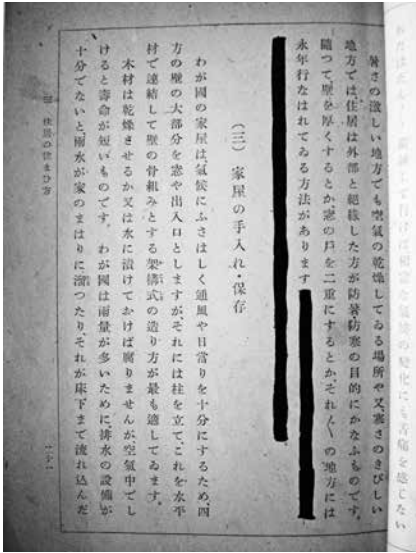 暑さの激しい地方でも空氣の乾燥してゐる場所や又、寒さのきびしい
地方では住居は外部と絶縁した方が防暑・防寒の目的にかなふものです。
隨つて、壁を厚くするとか、窓の戸を二重にするとか、それ〲の地方には
永年行なはれてゐる方法があります
(三) 家屋の手入れ・保存
わが國の家屋は、氣候にふさはしく通風や日當りを十分にするため、四
方の壁の大部分を窓や出入口としますが、それには柱を立て、これを水平
材で連結して壁の骨組みとする架構式の造り方が最も適してゐます。
木材は乾燥させるか又は水に漬けておけば腐りませんが、空氣中でし
けると壽命が短いものです。わが國は雨量が多いために、排水の設備が
十分でないと、雨水が家のまはりに溜つたり、それが床下まで流れ込んだ
住居の住まひ方